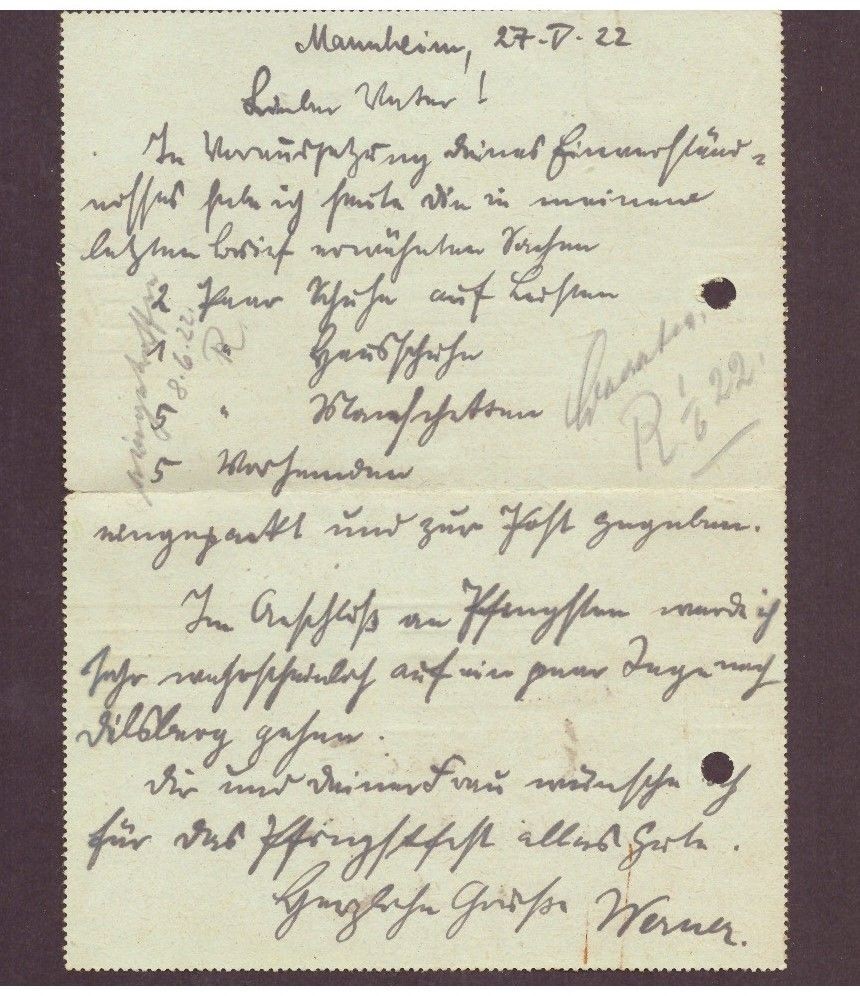 Mannheim, 27.V.22
Lieber Vater!
In Voraussetzung deines Einverständ-
nisses habe ich heute die in meinem
letzten Brief erwähnten Sachen
2 Paar Schuhe auf Leisten
1 " Hausschuhe
5 " Manschetten
5 Vorhemden
eingepackt und zur Post gegeben.
Im Anschluß an Pfingsten werde ich
sehr wahrscheinlich auf ein paar Tage nach
Dilsberg gehen.
Dir und deiner Frau wünsche ich
für das Pfingstfest alles Gute.
Herzliche Grüße Werner.
eingetroffen
8.6.22.
R
R 1/6 22.